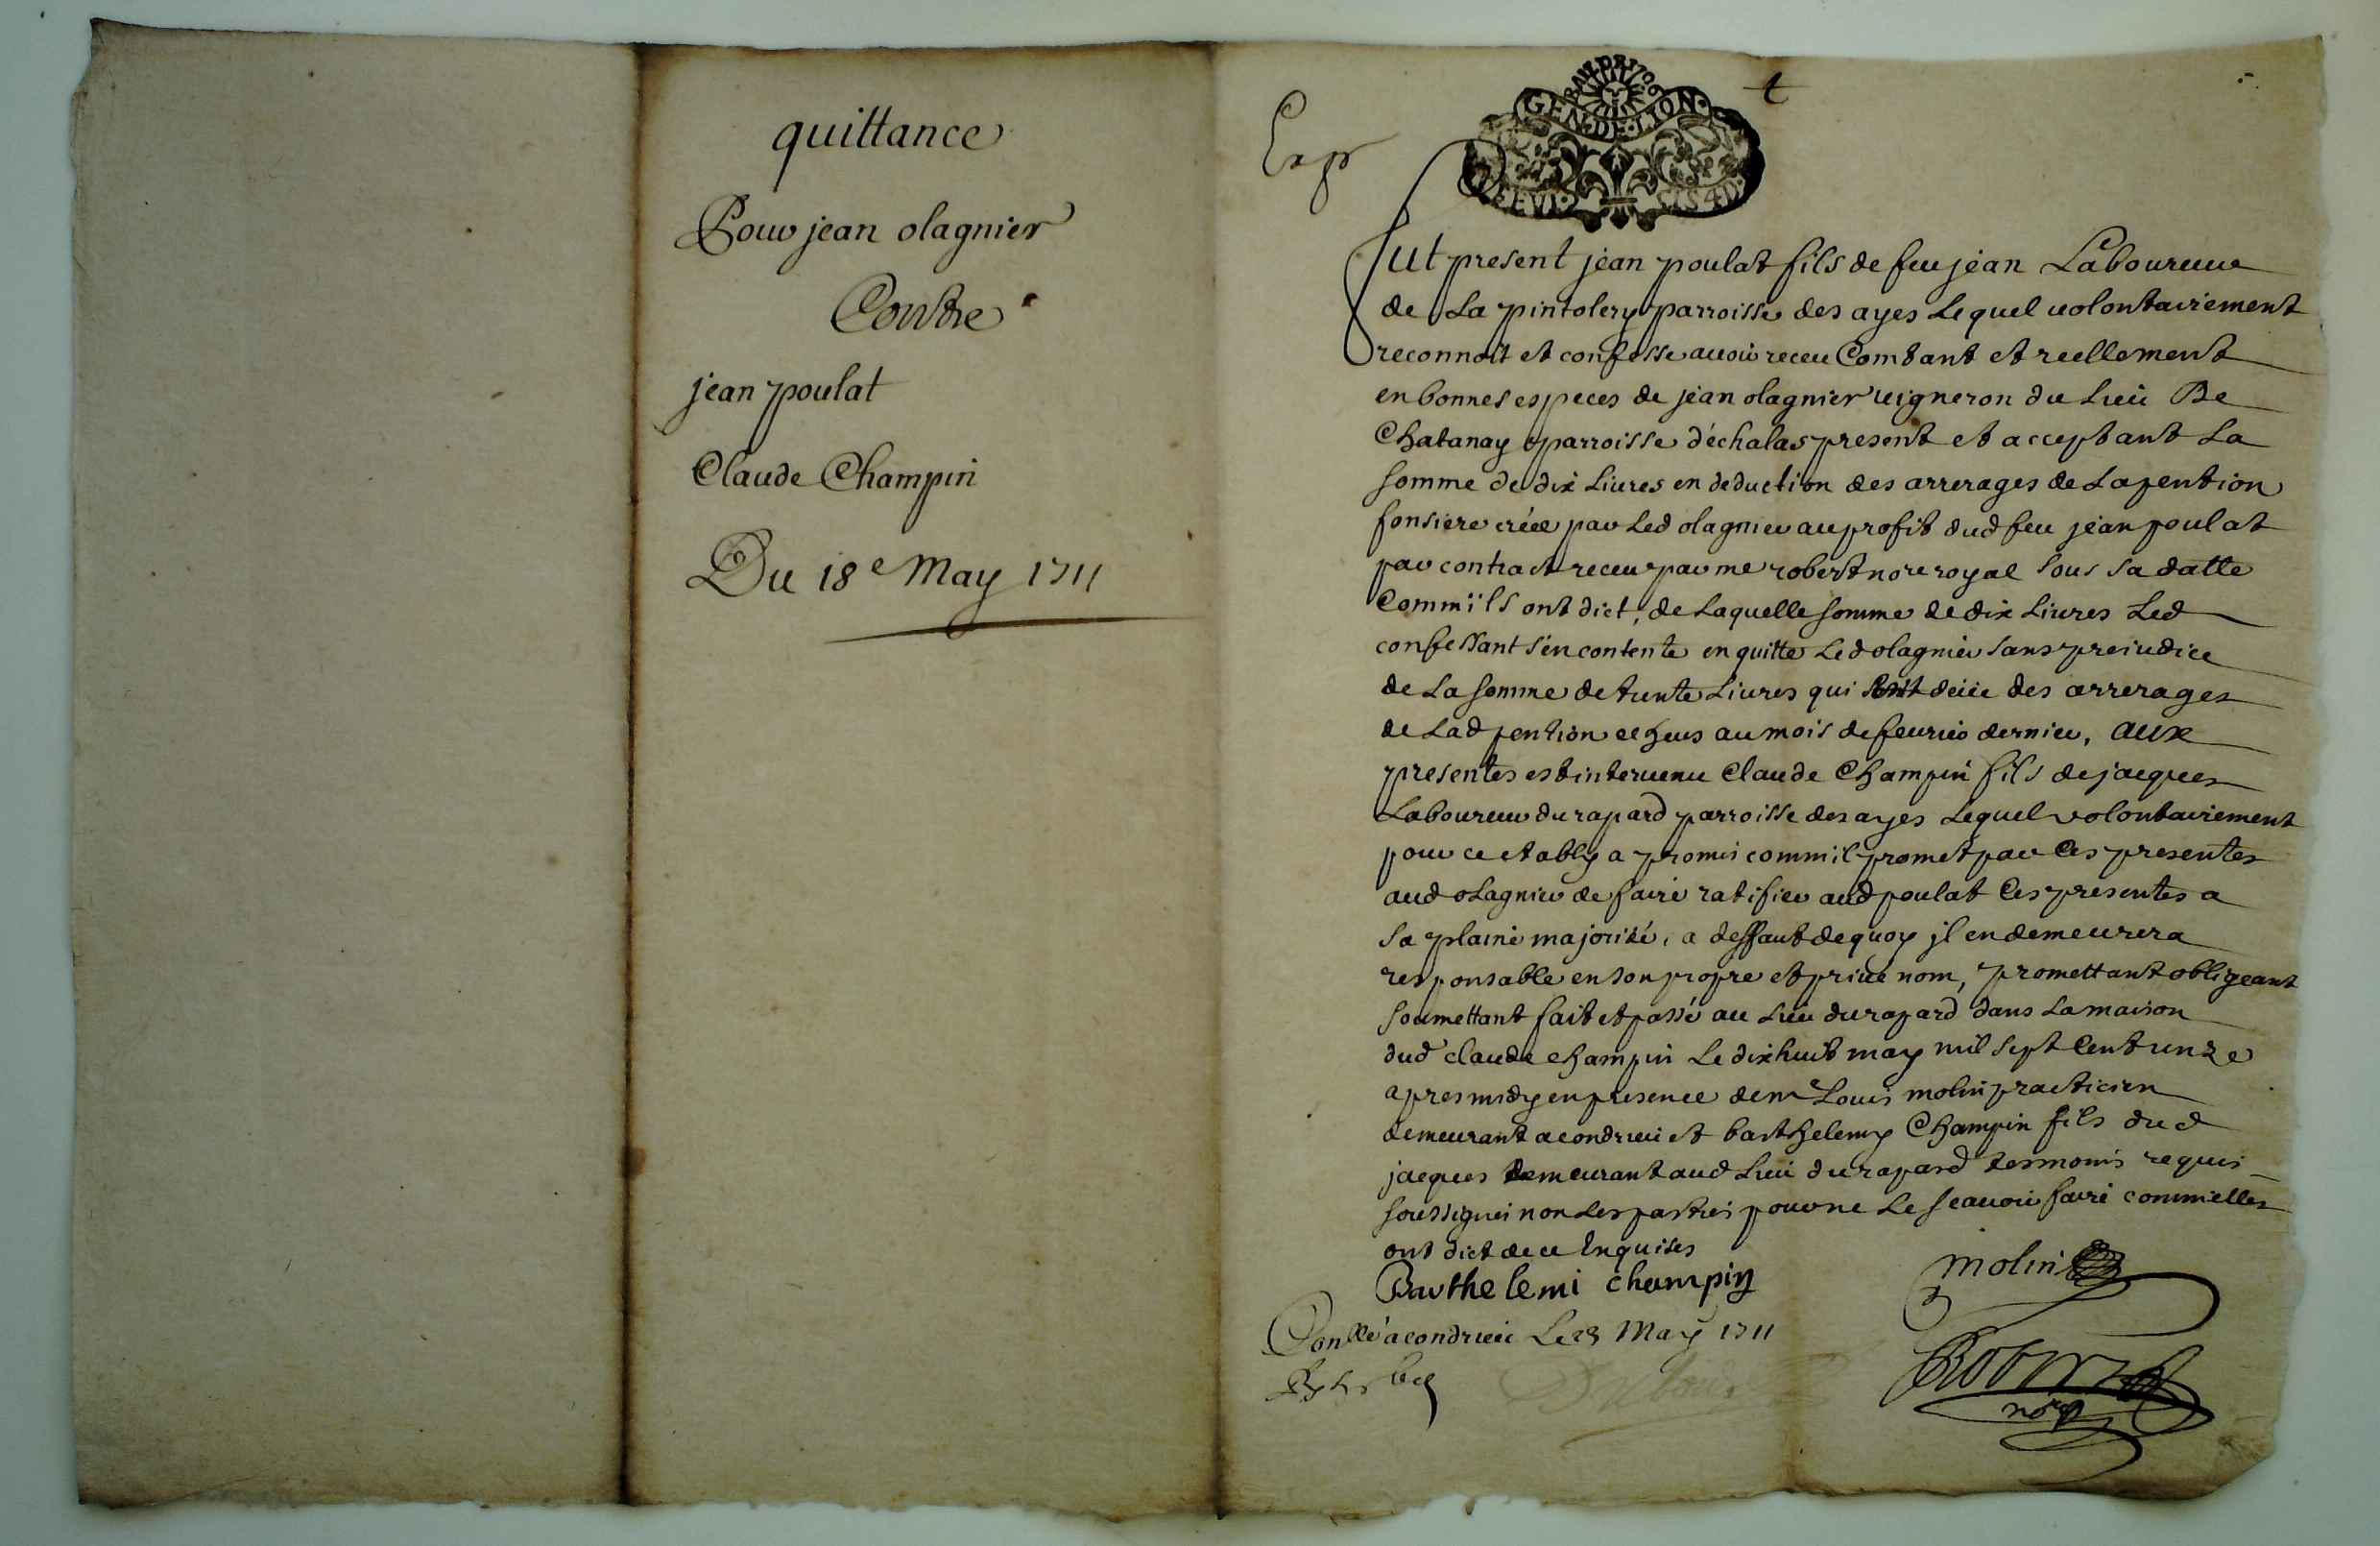 quittance
Pour jean olagnier
Contre
jean poulat
Claude Champin
Du 18e May 1711
Exp
BAUX DE 1706
GEN·DE·LION·
fut present jean poulat fils de feu jean Laboureur
de La pintolery parroisse des ayes Lequel uolontairement
reconnoit et confesse auoir receu Comtant et reellement
en bonnes especes de jean olagnier uigneron du Lieu De
Chatanay parroisse d'échalas present et acceptant La
somme de dix Liures en deduction des arrerages de La pention
fonsiere créée par Led olagnier au profit dud feu jean poulat
par contract receu par me robert nore royal sous sa datte
Comm'ils ont dict, de Laquelle somme de dix Liures Led
confessant s'en contente en quitte Led olagnier sans preiudice
de La somme de trente Liures qui deüe des arrerages
de Lad pention echeus au mois de feurier dernier, aux
presentes est interuenu Claude Champin fils de jacques
Laboureur du rapard parroisse des ayes Lequel volontairement
pour ce etably a promis comm'il promet par Ces presentes
aud olagnier de faire ratifier aud poulat Ces presentes a
sa plaine majorité, a deffaut de quoy jl en demeurera
responsable en son propre et priué nom, promettant obligeant
soumettant fait et passé au Lieu du rapard dans La maison
dud claude champin Le dixhuit may mil sept Cent unze
apres midy en presence de me Louis molin practicien
demeurant a condrieu et barthelemy Champin fils dud
jacques demeurant aud Lieu du rapard tesmoins requis
soussignés non Les parties pour ne Le scauoir faire comm'elles
ont dict de ce Enquises
Barthelemi champin
molin
Conllé a condrieu Le 28 May 1711
Robert
nore